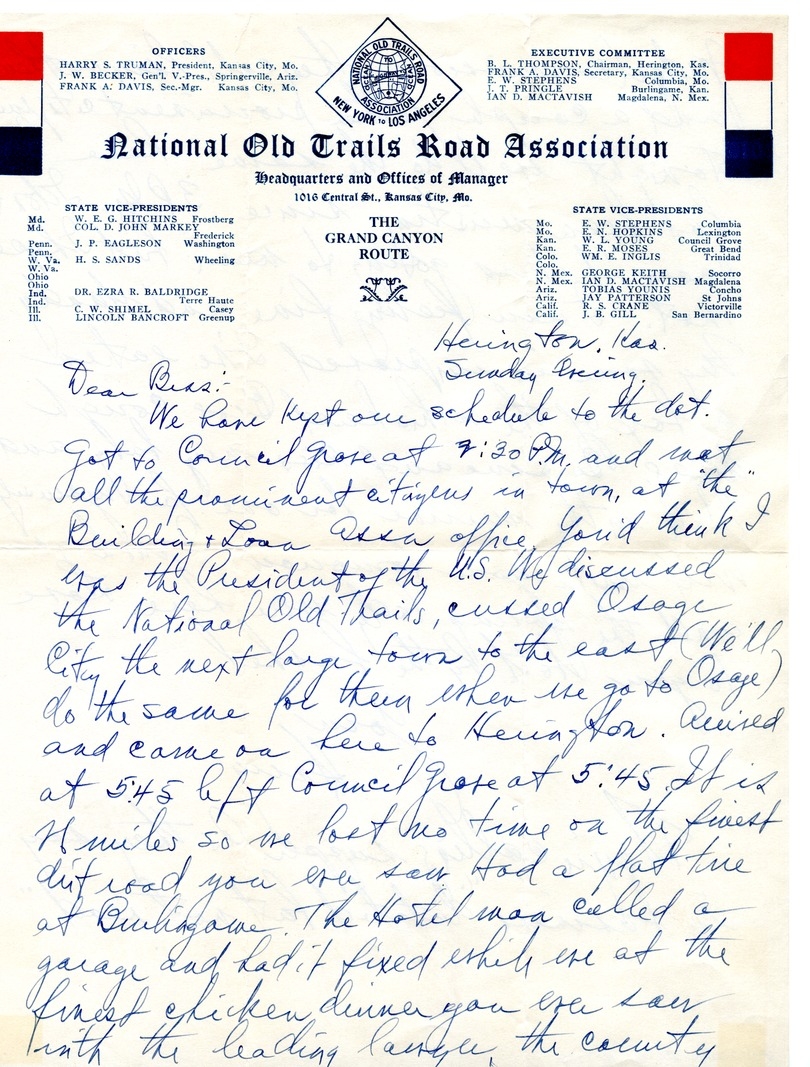 OFFICERS
HARRY S. TRUMAN, President, Kansas City, Mo.
J. W. BECKER, Gen'l V.-Pres., Springerville, Ariz.
FRANK A. DAVIS, Sec.-Mgr. Kansas City, Mo.
NATIONAL OLD TRAILS ROAD
OCEAN TO OCEAN
ASSOCIATION
NEW YORK TO LOS ANGELES
EXECUTIVE COMMITTEE
B. L. THOMPSON, Chairman, Herington, Kas.
FRANK A. DAVIS, Secretary, Kansas City, Mo.
E. W. STEPHENS Columbia, Mo.
J. T. PRINGLE Burlingame, Kan.
IAN D. MACTAVISH Magdalena, N. Mex.
National Old Trails Road Association
Headquarters and Offices of Manager
1016 Central St., Kansas City, Mo.
THE
GRAND CANYON
ROUTE
STATE VICE-PRESIDENTS
Md. W. E. G. HITCHINS Frostberg
Md. COL. D. JOHN MARKEY
Frederick
Penn. J. P. EAGLESON Washington
Penn.
W. Va. H. S. SANDS Wheeling
W. Va.
Ohio
Ohio
Ind. DR. EZRA R. BALDRIDGE
Ind. Terre Haute
Ill. C. W. SHIMEL Casey
Ill. LINCOLN BANCROFT Greenup
STATE VICE-PRESIDENTS
Mo. E. W. STEPHENS Columbia
Mo. E. N. HOPKINS Lexington
Kan. W. L. YOUNG Council Grove
Kan. E. R. MOSES Great Bend
Colo. WM. E. INGLIS Trinidad
Colo.
N. Mex. GEORGE KEITH Socorro
N. Mex. IAN D. MACTAVISH Magdalena
Ariz. TOBIAS YOUNIS Concho
Ariz. JAY PATTERSON St Johns
Calif. R. S. CRANE Victorville
Calif. J. B. GILL San Bernardino
Herington, Kas.
Sunday Evening.
Dear Bess:-
We have kept our schedule to the dot.
Got to Council Grove at :30 P.M. and met
all the prominent citizens in town, at "the"
Building & Loan Assn office. You'd think I
was the President of the U.S. We discussed
the National Old Trails, cussed Osage
City, the next large town to the east (We'll
do the same for them when we go to Osage)
and came on here to Herington. Arrived
at 5:45 left Council Grove at 5:45. It is
miles so we lost no time on the finest
dirt road you ever saw. Had a flat tire
at Burlingame. The Hotel man called a
garage and had it fixed while we at the
finest chicken dinner you ever saw
with the leading lawyer, the county